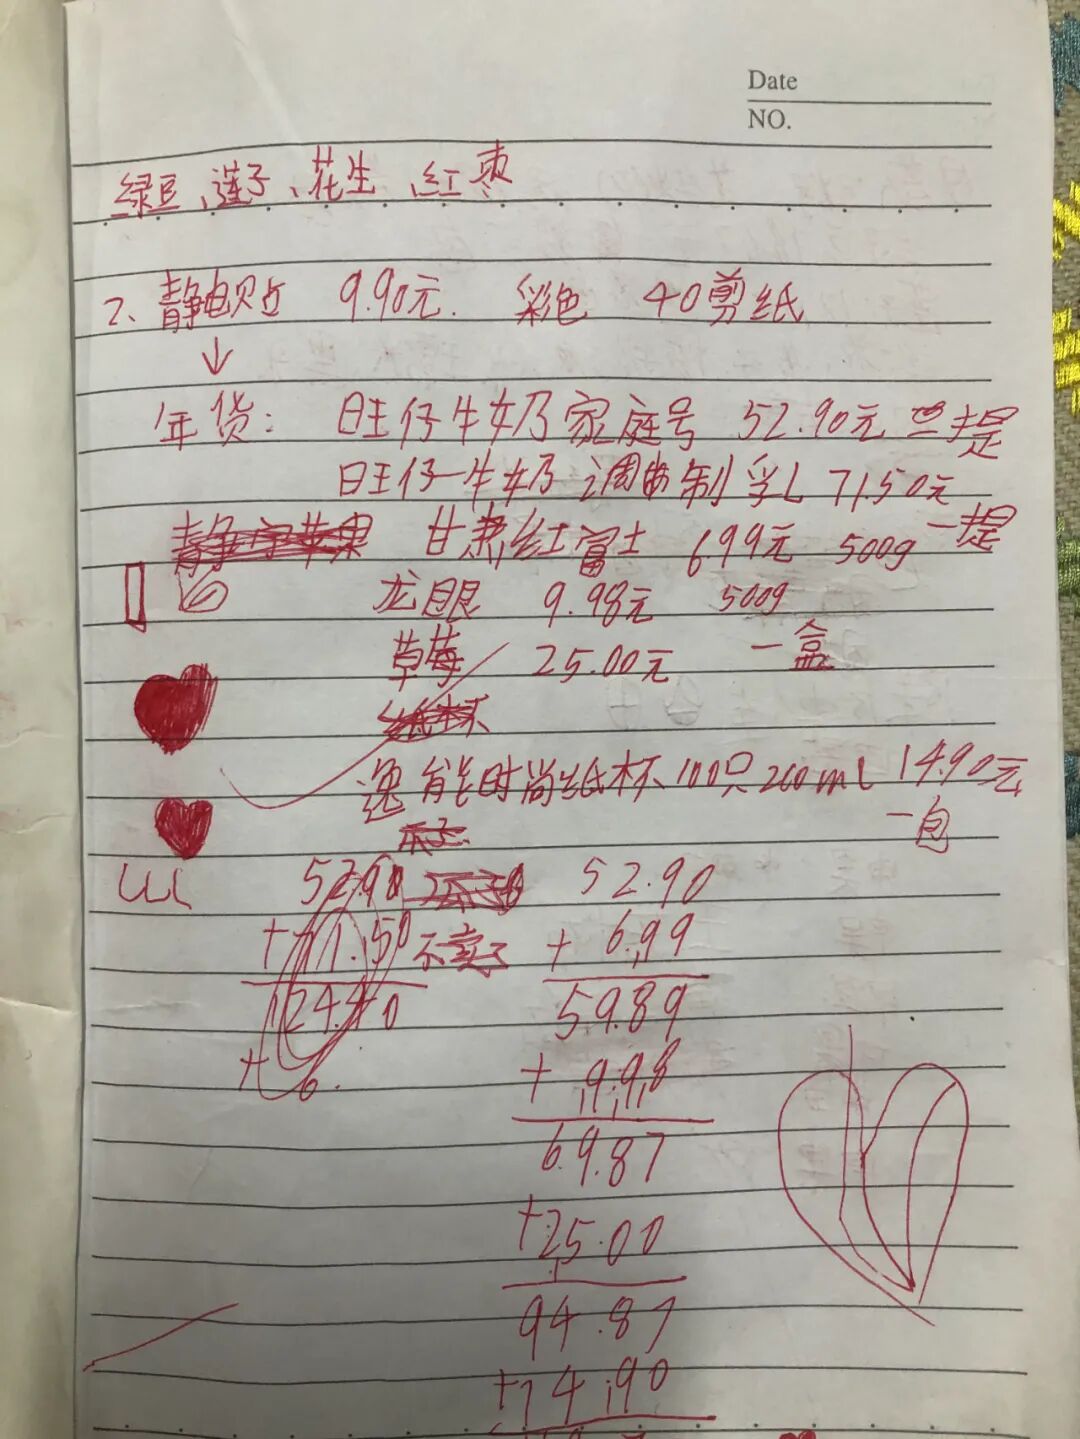 Date
NO.
绿豆、莲子、花生、红枣
2、静电贴 9.90元. 彩色 40剪纸
↓
年货: 旺仔牛奶家庭号 52.90元 一提
旺仔牛奶 调制乳 71.50元
一提
甘肃红富士 6.99元 500g
龙眼 9.98元 500g
草莓 25.00元 一盒
纸杯
逸能时尚纸杯100只260ml 14.90元
一包
52.90
+71.50 不卖了
124.40
+6.
52.90
+ 6.99
59.89
+ 9.98
69.87
+25.00
94.87
+14.90